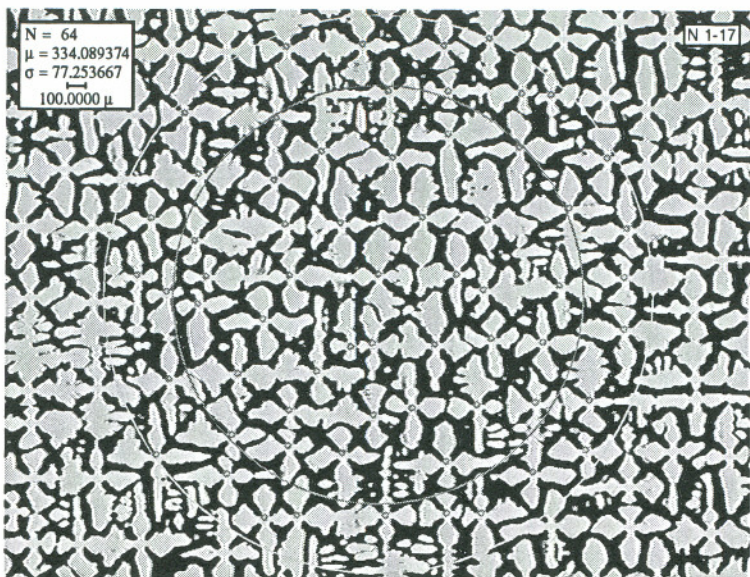 N = 64
μ = 334.089374
σ = 77.253667
100.0000 μ
N 1-17